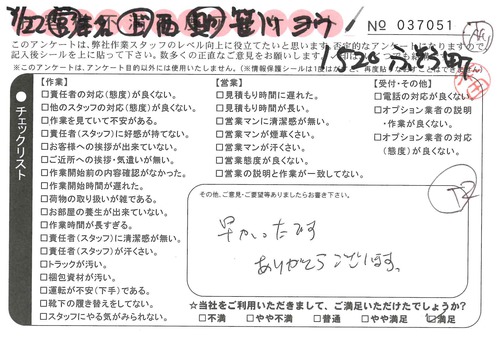 No 037051
このアンケートは、弊社作業スタッフのレベル向上に役立てたいと思います。否定的なアンケートになりますので
記入後シールを上に貼って下さい。数多くの正直なご意見をお願いします。
※このアンケートは、アンケート目的以外には使用いたしません。
チェックリスト
【作業】
□責任者の対応(態度)が良くない。
□他のスタッフの対応(態度)が良くない。
□作業を見ていて不安がある。
□責任者(スタッフ)に好感が持てない。
□お客様への挨拶が出来ていない。
□ご近所への挨拶・気遣いが無い。
□作業前の内容確認がなかった。
□作業開始時間が遅れた。
□荷物の取り扱いが雑である。
□お部屋の養生が出来ていない。
□作業時間が長すぎる。
□責任者(スタッフ)に清潔感が無い。
□責任者(スタッフ)が汗くさい。
□トラックが汚い。
□梱包資材が汚い。
□運転が不安(下手)である。
□靴下の履き替えをしてない。
□スタッフにやる気がみられない。
【営業】
□見積もり時間に遅れた。
□見積もり時間が長い。
□営業マンに清潔感が無い。
□営業マンが煙草くさい。
□営業マンが汗くさい。
□営業態度が良くない。
□営業の説明と作業が一致してない。
【受付・その他】
□電話の対応が良くない。
□オプション業者の説明
・作業が良くない。
□オプション業者の対応
(態度)が良くない。
その他、ご意見・ご要望等ありましたらお書き下さい。
早かったです
ありがとうございます。
☆当社をご利用いただきまして、ご満足いただけたでしょうか?
□不満 □やや不満 □普通 □やや満足 □満足